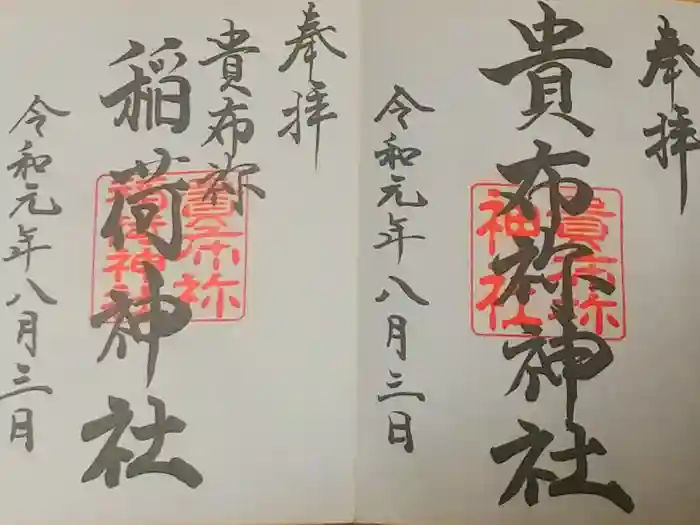 奉拝
貴布祢神社
貴布祢神社
令和元年八月三日
奉拝
貴布祢
稲荷神社
貴布祢
稲荷神社
令和元年八月三日